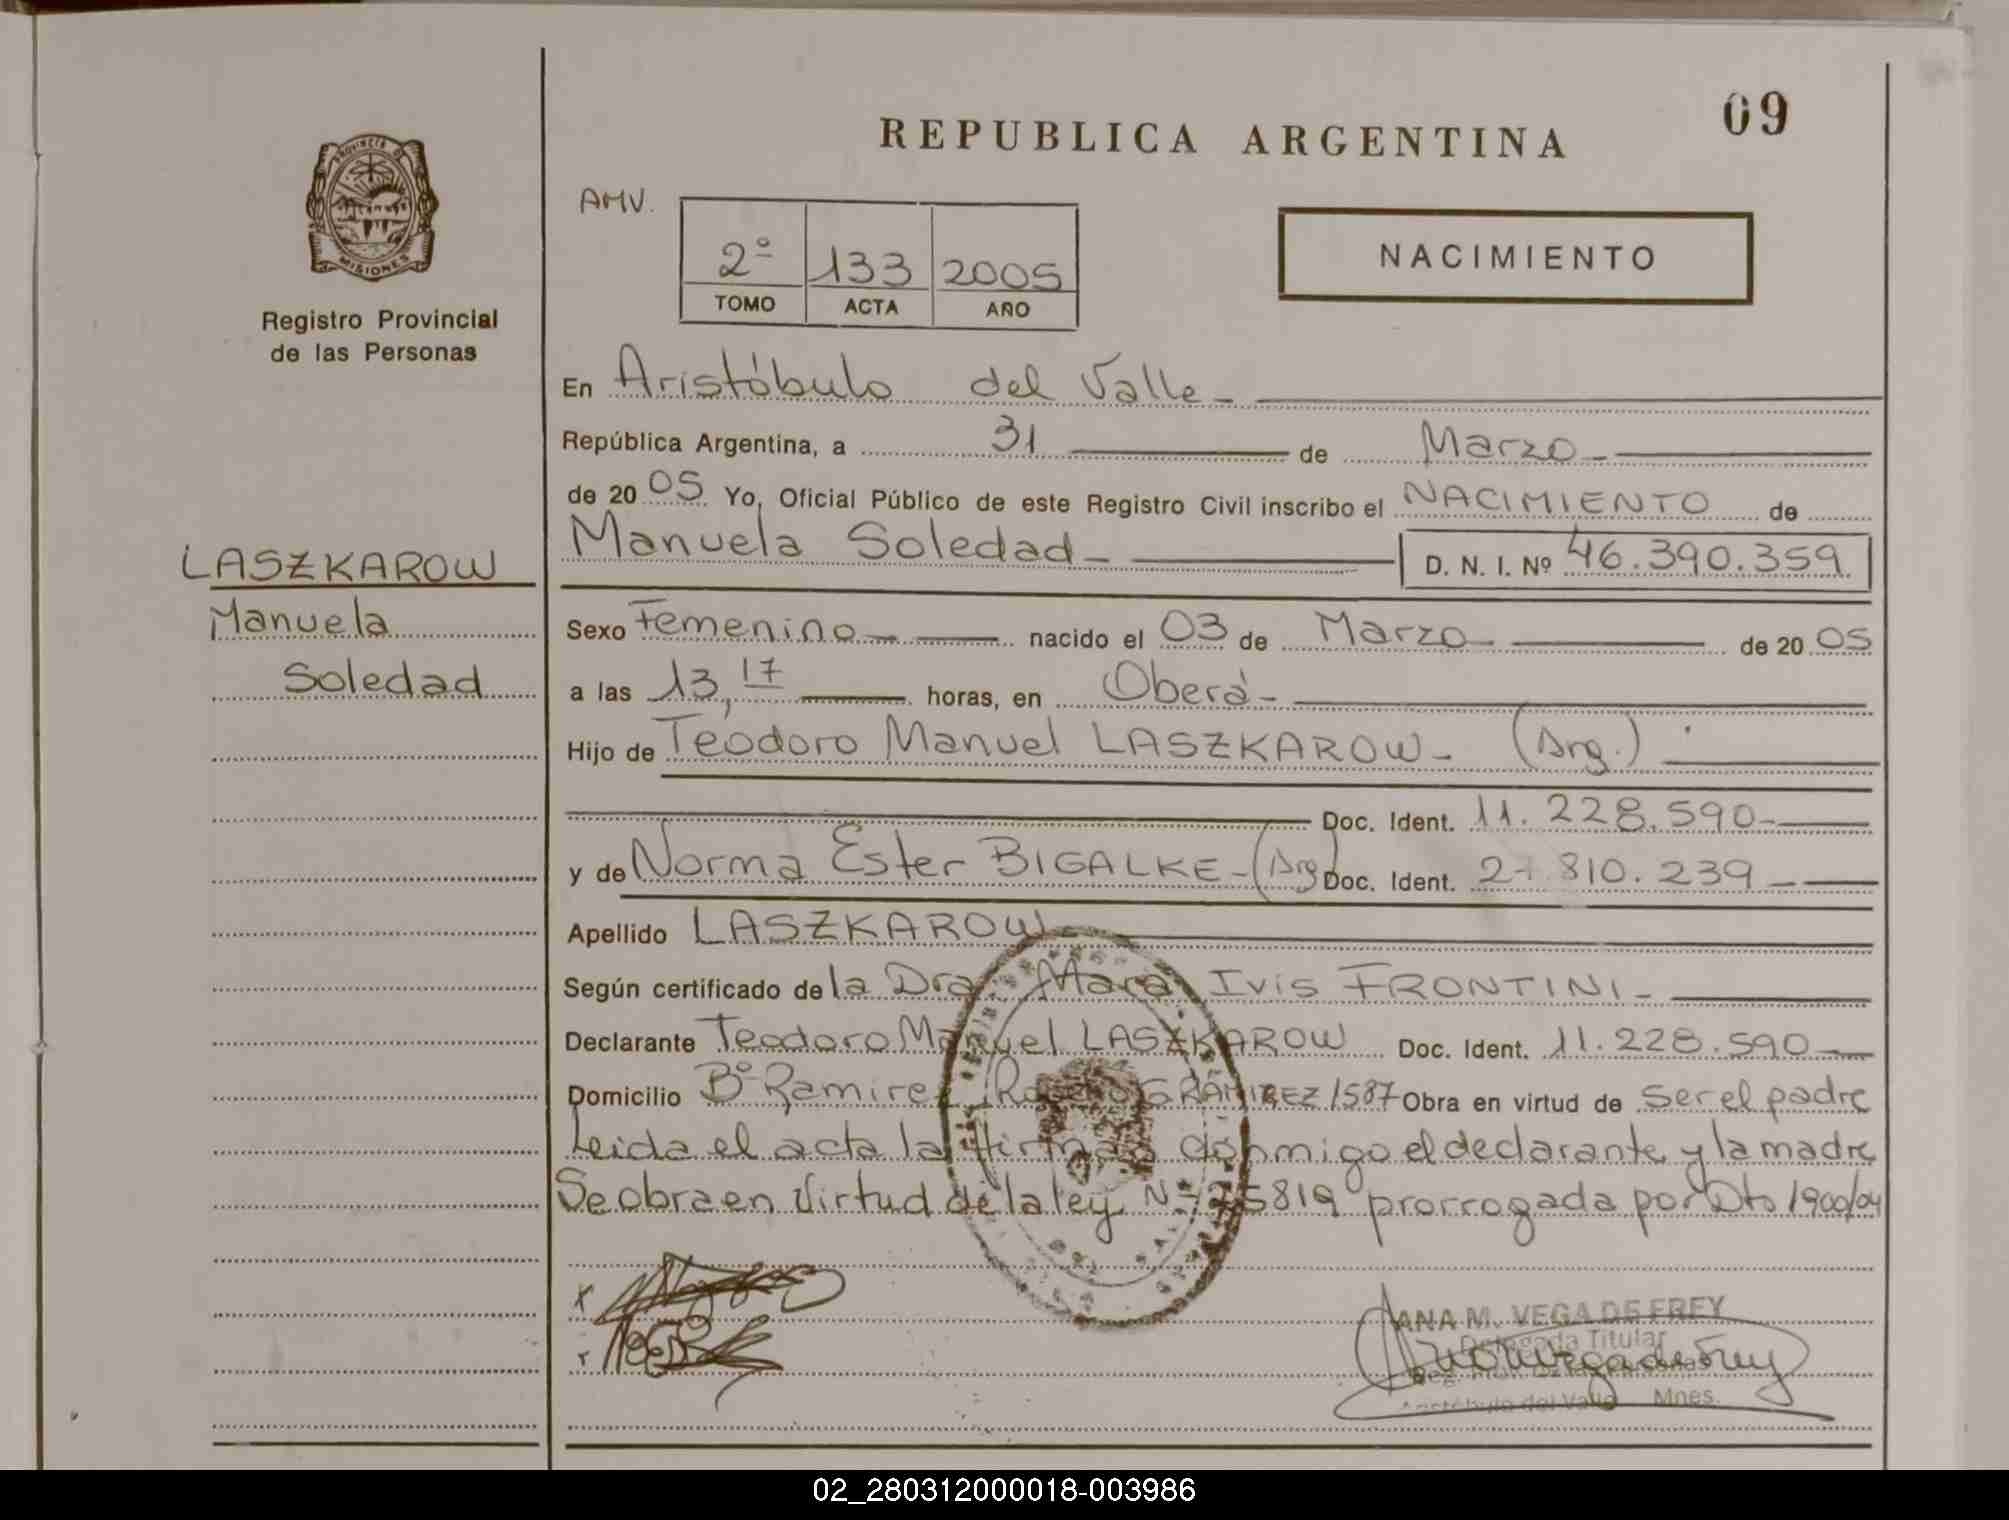 REPUBLICA ARGENTINA
09
PROVINCIA DE
MISIONES
Registro Provincial
de las Personas
AMV.
2º 133 2005
TOMO ACTA AÑO
NACIMIENTO
LASZKAROW
Manuela
Soledad
En Aristóbulo del Valle
República Argentina, a 31 de Marzo
de 2005 Yo, Oficial Público de este Registro Civil inscribo el NACIMIENTO de
Manuela Soledad D. N. I. Nº 46.390.359
Sexo Femenino nacido el 03 de Marzo de 2005
a las 13,17 horas, en Oberá
Hijo de Teodoro Manuel LASZKAROW (Arg.)
Doc. Ident. 11.228.590
y de Norma Ester BIGALKE (Arg) Doc. Ident. 27.810.239
Apellido LASZKAROW
Según certificado de la Dra. Mara Ivis FRONTINI
Declarante Teodoro Manuel LASZKAROW Doc. Ident. 11.228.590
Domicilio Bº Ramirez G RAMIREZ 1587 Obra en virtud de ser el padre
Leida el acta la firman conmigo el declarante y la madre
Se obra en virtud de la ley Nº 25819 prorrogada por Dto 1900/04
ANA M. VEGA DE FREY
Delegada Titular
Aristóbulo del Valle Mnes.
02_280312000018-003986